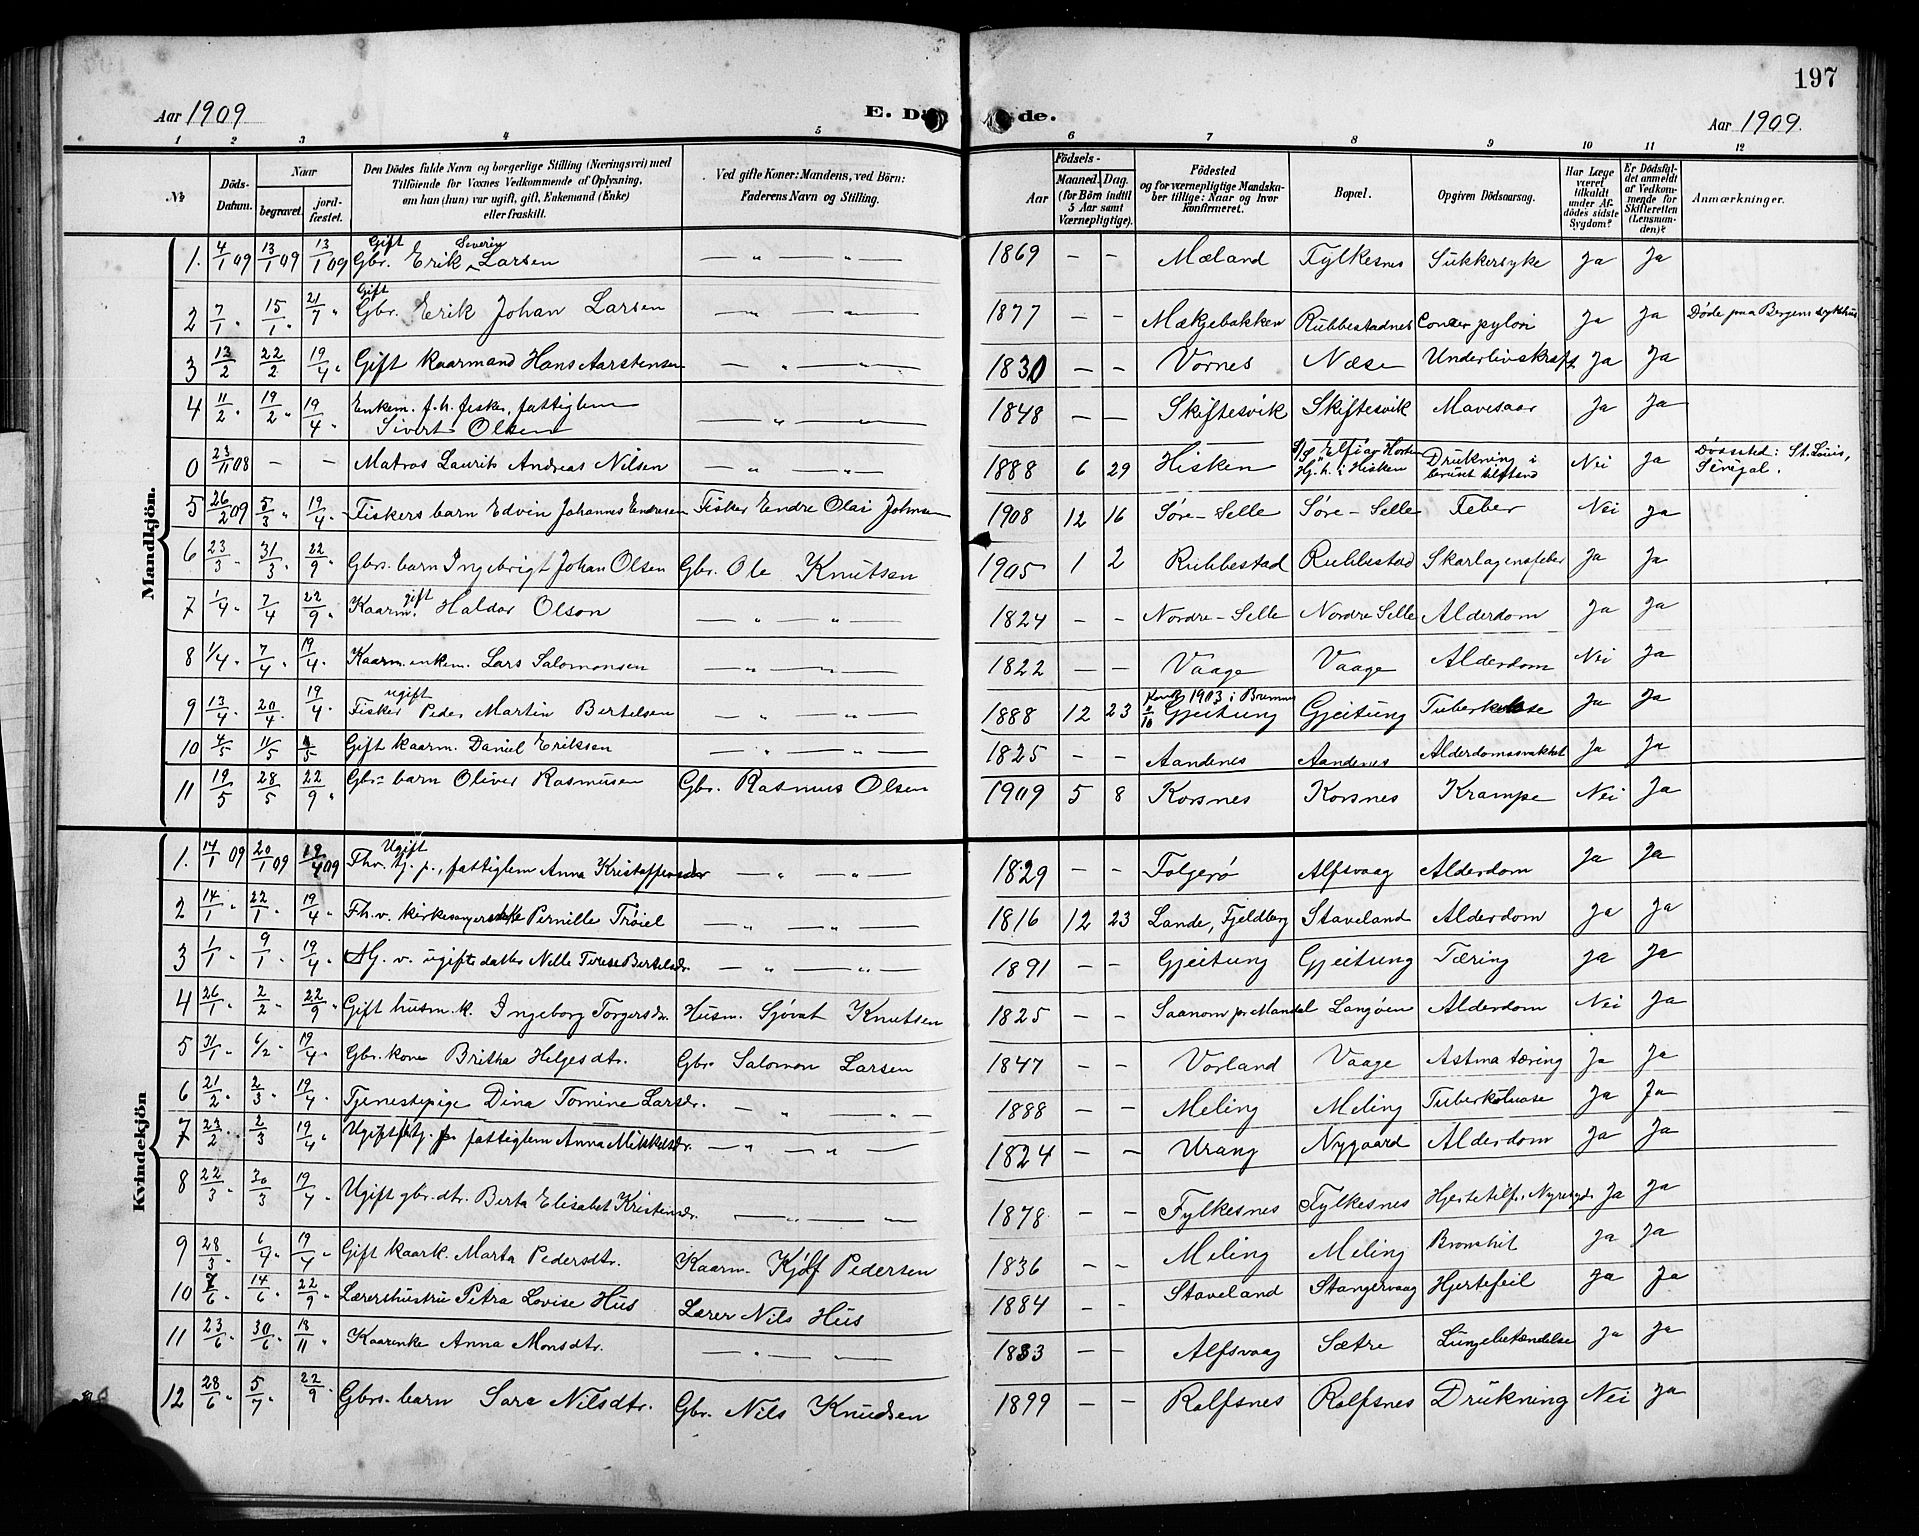 197
Aar 1909
E. Dö de.
Aar 1909.
1 2 3 4 5 6 7 8 9 10 11 12
№
Döds-Datum.
Naar
begravet.
jord-fæstet.
Den Dödes fulde Navn og borgerlige Stilling (Næringsvei) med
Tilföiende for Voxnes Vedkommende af Oplysning,
om han (hun) var ugift, gift, Enkemand (Enke)
eller fraskilt.
Ved gifte Koner: Mandens, ved Börn:
Faderens Navn og Stilling.
Födsels-
Aar
Maaned. Dag.
(for Börn indtil
5 Aar samt
Værnepligtige).
Födested
og for værnepligtige Mandska-
ber tillige: Naar og hvor
konfirmeret.
Bopæl.
Opgiven Dödsaarsag.
Har Læge
været
tilkaldt
under Af-
dödes sidste
Sygdom?
Er Dödsfal-
det anmeldt
af Vedkom-
mende for
Skifteretten
(Lensman-
den)?
Anmærkninger.
Mandkjön.
1. 4/1 09 13/1 09 13/1 09 Gift Gbr. Erik Severin Larsen — " — " — 1869 — — Mæland Fylkesnes Sukkersyke Ja Ja
2 7/1 " 15/1 " 21/7 " Gift Gbr. Erik Johan Larsen — " — " — 1877 Mækjebakken Rubbestadnes Cancer pylori Ja Ja Døde paa Bergens sykehus
3 13/2 22/2 19/4 " Gift kaarmand Hans Aarstensen — " — " — 1830 — — Vornes Næse Underlivskræft Ja Ja
4 11/2 " 19/2 " 19/4 Enkem. f.h. fisker, fattiglem Sivert Olsen — " — " — 1848 — — Skiftesvik Skiftesvik Mavesaar Ja Ja
0 23/11 08 — — Matros Laurits Andreas Nilsen — " — " — 1888 6 29 Hisken Hj. h. i Hisken Drukning i Nei Ja Dødssted: St. Louis, Senegal.
5 26/2 09 5/3 " 19/4 " Fiskers barn Edvin Johannes Endresen Fisker Endre Olai Johnsen 1908 12 16 Søre-Selle Søre-Selle Feber Nei Ja
6 23/3 " 31/3 " 22/9 " Gbrs. barn Ingebrigt Johan Olsen Gbr. Ole Knutsen 1905 1 2 Rubbestad Rubbestad Skarlagensfeber Ja Ja
7 1/4 " 7/4 22/9 " Kaarm. gift Haldor Olson — " — " — 1824 — — Nordre-Selle Nordre Selle Alderdom Ja Ja
8 1/4 " 7/4 " 19/4 " Kaarm. enkem. Lars Salomonsen — " — " — 1822 — — Vaage Vaage Alderdom Nei Ja
9 13/4 " 20/4 " 19/4 " Fisker ugift Peder Martin Bertelsen — " — " — 1888 12 23 Konf. 1903 i Bremnes Gjeitung Gjeitung Tuberkulose Ja Ja
10 4/5 " 11/5 " 4/5 Gift kaarm. Daniel Eriksen — " — " — 1825 — — Aandenes Aandenes Alderdomssvakhet Ja Ja
11 19/5 28/5 22/9 " Gbr- barn Oliver Rasmusen Gbr. Rasmus Olsen 1909 5 8 Korsnes Korsnes Krampe Nei Ja
Kvindekjön
1. 14/1 09 20/1 09 19/4 09 Ugift Fhv. tj. p., fattiglem Anna Kristoffersdr — " — " — 1829 Folgerø Alfsvaag Alderdom Ja Ja
2 14/1 " 22/1 " 19/4 " Fh. v. kirkesangerske Pernille Trøiel — " — " — 1816 12 23 Lande, Fjeldberg Staveland Alderdom Ja Ja
3 1/1 " 9/1 " 19/4 " Hj. v. ugifte datter Nelle Terese Bertelsdr. — " — " — 1891 Gjeitung Gjeitung Tæring Ja Ja
4 26/1 " 2/2 " 22/9 " Gift husm. k. Ingeborg Torgersdr. Husm. Sjøvat Knutsen 1825 — — Saanom pr Mandal Langøen Alderdom Nei Ja
5 31/1 " 6/2 " 19/4 " Gbr. kone Britha Helgesdtr. Gbr. Salomon Larsen 1847 — — Vorland Vaage Astma tæring Ja Ja
6 21/2 " 2/3 " 19/4 " Tjenestepige Dina Tomine Larsdr. — " — " — 1888 — — Meling Meling Tuberkulose Ja Ja
7 23/2 " 2/3 19/4 " Ugift fh tj. p. fattiglem Anna Mikkelsdr. — " — " — 1824 — — Urang Nygaard Alderdom Ja Ja
8 22/3 " 30/3 " 19/4 " Ugift gbr. dtr. Berta Elisabet Kristensdr. — " — — 1878 — — Fylkesnes Fylkesnes Hjertetilf. Nyresyd. Ja Ja
9 28/3 " 6/4 " 19/4 " Gift kaark. Marta Pedersdtr. Kaarm. Kjølf Pedersen 1836 — — Meling Meling Bronchit Ja Ja
10 7/6 " 14/6 " 22/9 " Lærershustru Petra Lovise Hus Lærer Nils Hus 1884 — — Staveland Stangervaag Hjertefeil Ja Ja
11 23/6 " 30/6 " 18/11 " Kaarenke Anna Monsdtr. — " — " — 1833 — — Alfsvaag Sætre Lungebetændelse Ja Ja
12 28/6 " 5/7 " 22/9 " Gbrs. barn Sara Nilsdtr. Gbr. Nils Knudsen 1899 — — Rolfsnes Rolfsnes Drukning Nei Ja